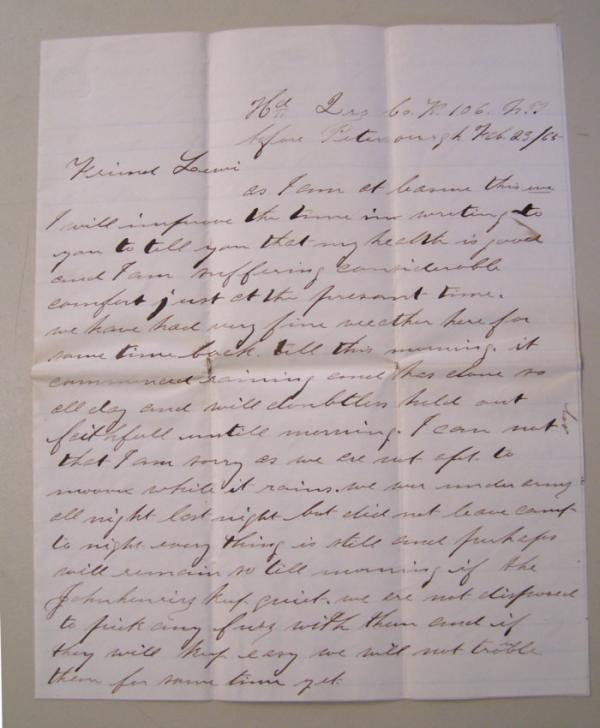 Hd Qrs Co. K. 106. N.Y.
before Petersourgh Feb. 23/65
Friend Lewi
as I am at leasure this eve
I will improve the time in writing to
you to tell you that my health is good
and I am suffering considerable
comfort just at the present time.
we have had very fine weather here for
some time back. till this morning. it
commenced raining and has done so
all day and will doubtless hold out
faithfull untill morning. I can not say
that I am sorry as we are not apt to
moove while it rains. we war under arms
all night last night but did not leave camp
to night every thing is still and perhaps
will remain so till morning if the
keep quiet. we are not disposed
to pick any fuss with them and if
they will keep easy we will not troble
them for some time yet.